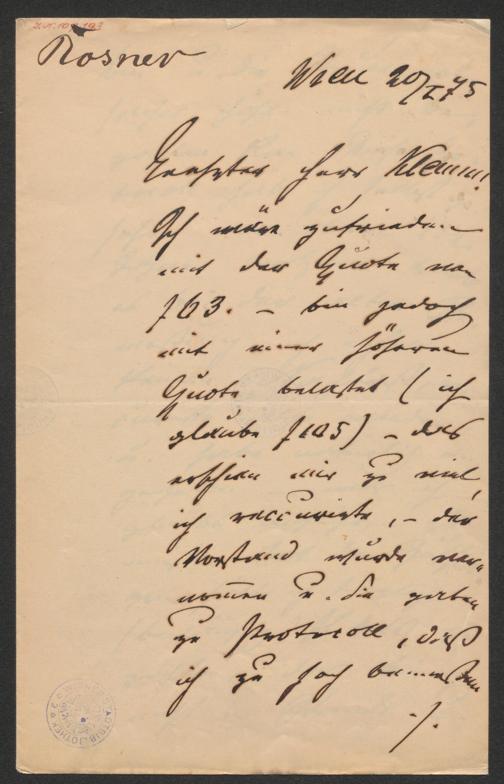 Rosner
Wien 20/I 75
Geehrter Herr Klemm!
Ich wäre zufrieden
mit der Quote von
f 63. – bin jedoch
mit einer höheren
Quote belastet (ich
glaube f 105) – das
erschien mir zu viel,
ich recurrirte, – der
Vorstand wurde ver-
nommen u. die gaben
zu Protocoll, daß
ich zu hoch bemessen
./.